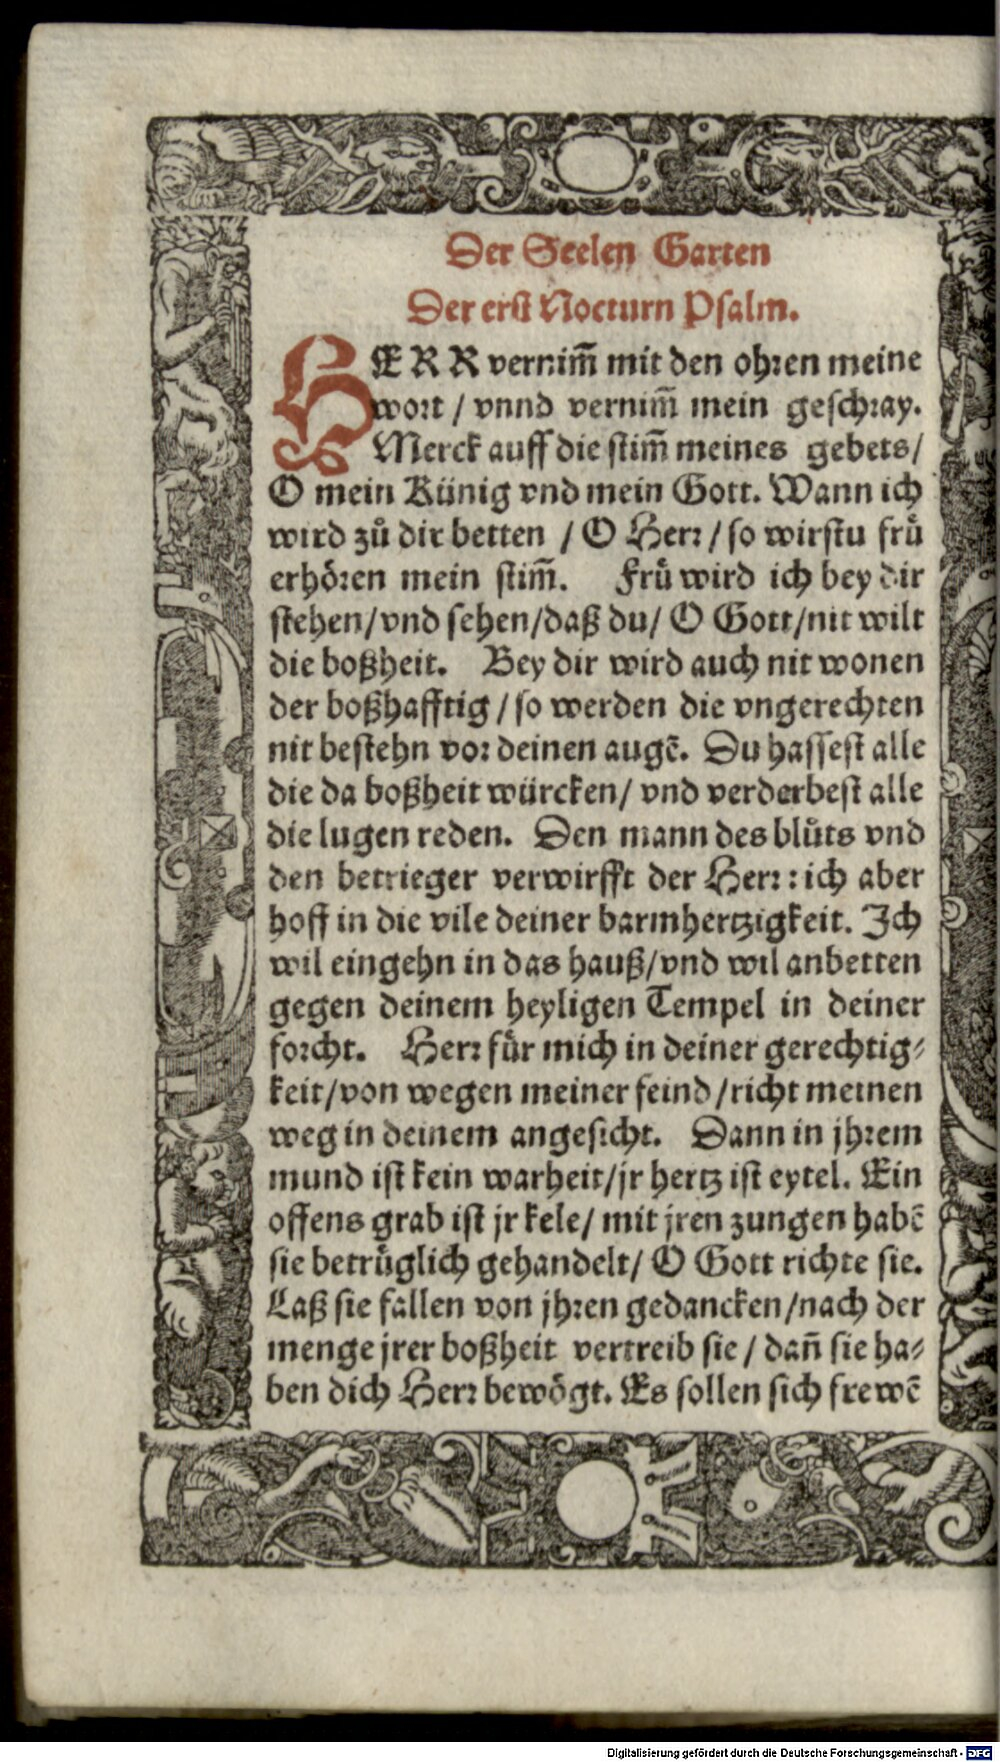 Der Seelen Garten
Der erst Nocturn Psalm.
HERR vernim̃ mit den ohren meine
wort / vnnd vernim̃ mein geschray.
Merck auff die stim̃ meines gebets /
O mein Künig vnd mein Gott. Wann ich
wird zů dir betten / O Herr / so wirstu frů
erhören mein stim̃. Frů wird ich bey dir
stehen / vnd sehen / daß du / O Gott / nit wilt
die boßheit. Bey dir wird auch nit wonen
der boßhafftig / so werden die vngerechten
nit bestehn vor deinen augẽ. Du hassest alle
die da boßheit würcken / vnd verderbest alle
die lugen reden. Den mann des blůts vnd
den betrieger verwirfft der Herr : ich aber
hoff in die vile deiner barmhertzigkeit. Ich
wil eingehn in das hauß / vnd wil anbetten
gegen deinem heyligen Tempel in deiner
forcht. Herr für mich in deiner gerechtig⸗
keit / von wegen meiner feind / richt meinen
weg in deinem angesicht. Dann in jhrem
mund ist kein warheit / jr hertz ist eytel. Ein
offens grab ist jr kele / mit jren zungen habẽ
sie betrüglich gehandelt / O Gott richte sie.
Laß sie fallen von jhren gedancken / nach der
menge jrer boßheit vertreib sie / dañ sie ha⸗
ben dich Herr bewögt. Es sollen sich frewẽ
Digitalisierung gefördert durch die Deutsche Forschungsgemeinschaft - DFG